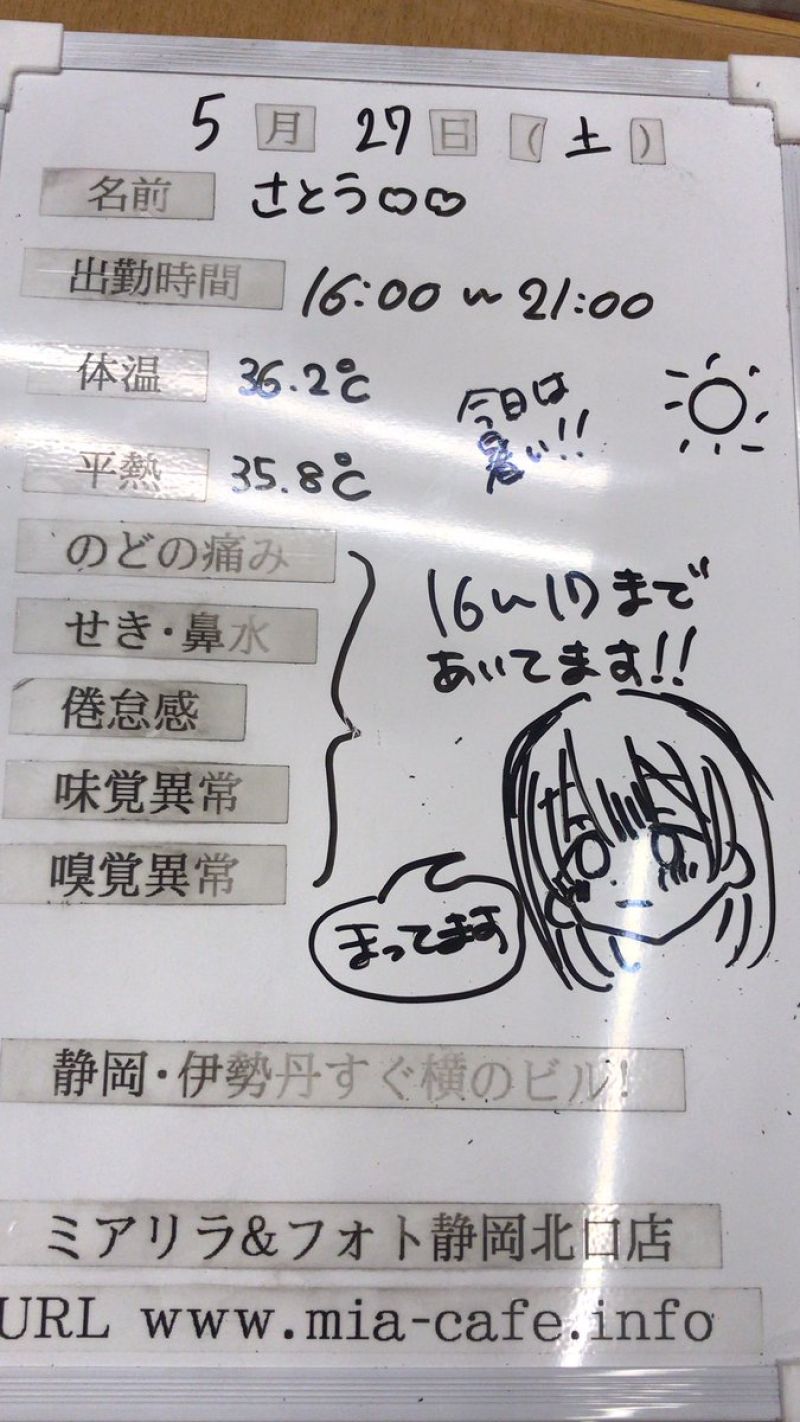 5月27日(土)
名前 さとう
出勤時間 16:00~21:00
体温 36.2℃
今日は
暑い!!
平熱 35.8℃
のどの痛み
せき・鼻水
倦怠感
味覚異常
嗅覚異常
16~17まで
あいてます!!
まってます
静岡・伊勢丹すぐ横のビル!
ミアリラ&フォト静岡北口店
URL www.mia-cafe.info